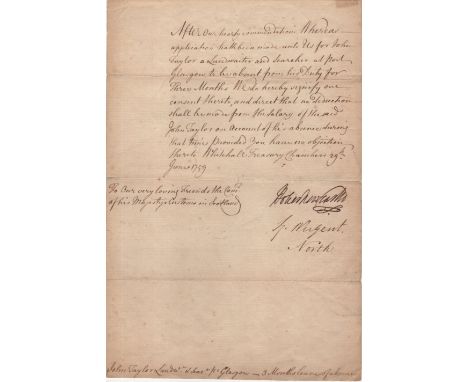 After Our hearty commendations Whereas
application hath been made unto Us for John
Taylor a Landwaiter and Searcher at port
Glasgow to be absent from his Duty for
Three Months We do hereby signify our
consent thereto, and direct that no deduction
shall be made from the Salary of the said
John Taylor on Account of his absence during
that time provided You have no objection
thereto Whitehall Treasury Chambers 29th
June 1759
To Our very loving Friends the Comrs
of his Majestys Customs in Scotland
Holles Newcastle
J. Nugent.
North
John Taylor Landwr & Searr Pt Glasgow — 3 Months leave of absence